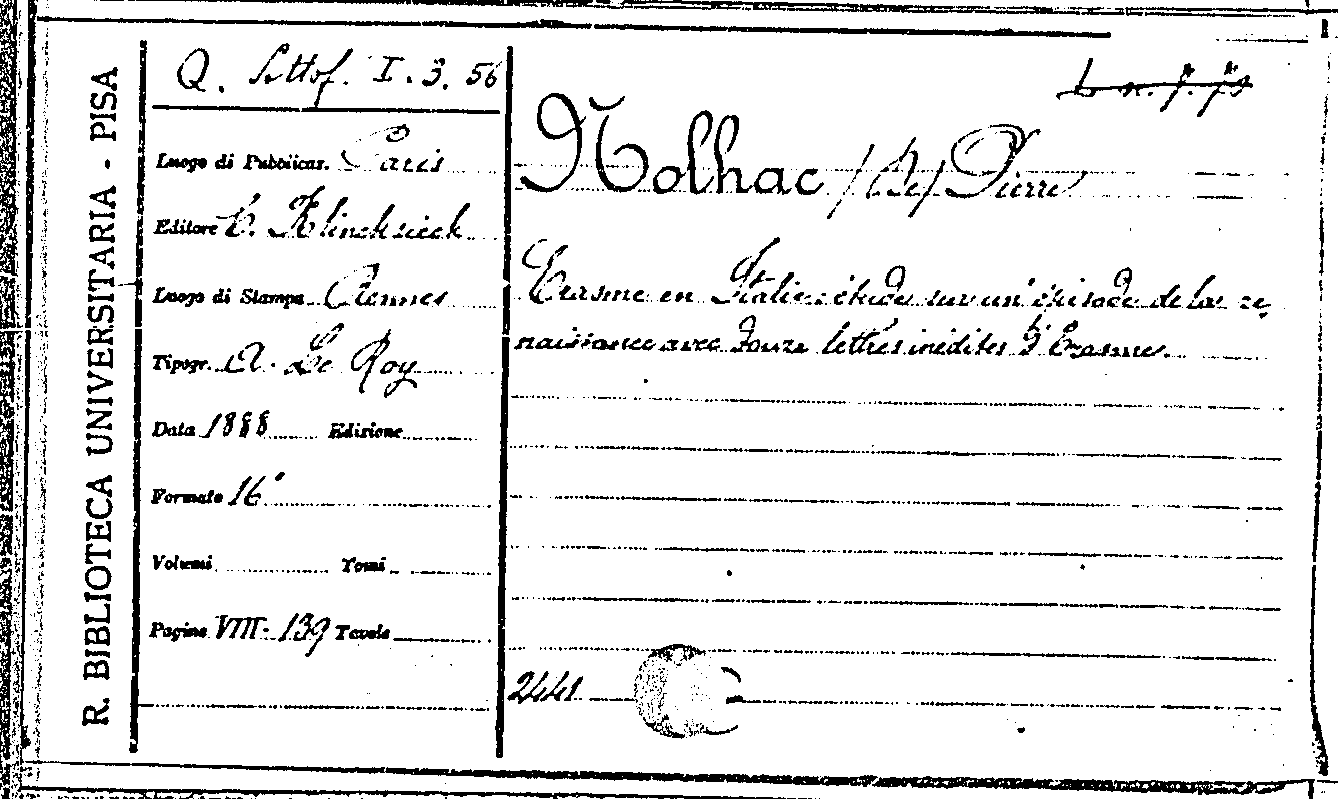 R. BIBLIOTECA UNIVERSITARIA - PISA
Q. Sottof. I. 3. 56
Luogo di Pubblicaz. Paris
Editore C. Klincksieck
Luogo di Stampa Rennes
Tipogr. A. Le Roy
Data 1888 Edizione
Formato 16°
Volumi Tomi
Pagine VIII-139 Tavole
Nolhac /De/ Pierre
Erasme en Italie: étude sur un épisode de la re-
naissance avec douze lettres inédites d'Erasme.
2441